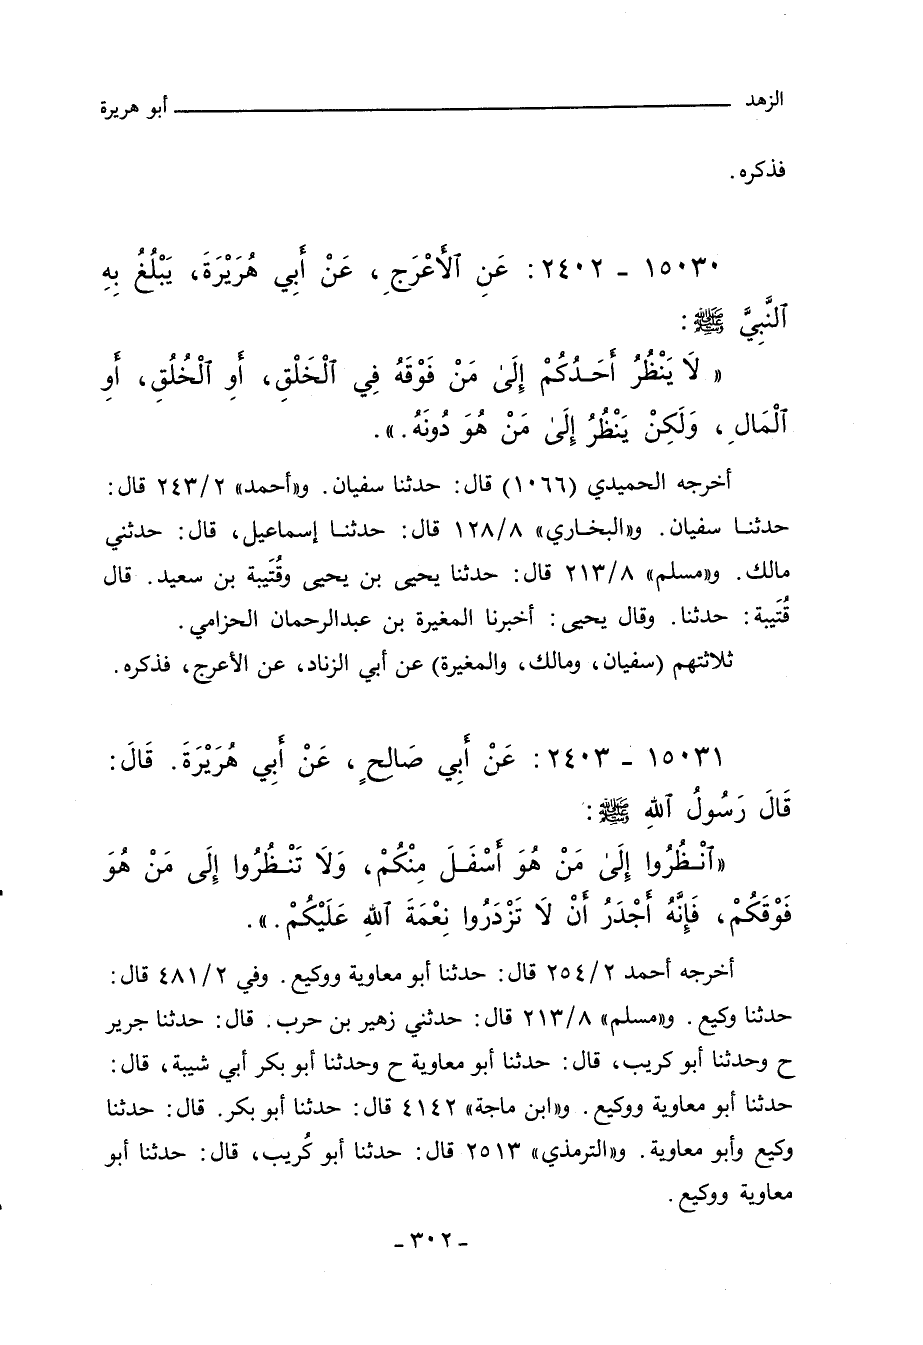 الزهد ــــــــــ أبو هريرة
فذكره.
١٥٠٣٠ - ٢٤٠٢: عَنِ ٱلْأَعْرَجِ، عَنْ أَبِي هُرَيْرَةَ، يَبْلُغُ بِهِ
ٱلنَّبِيَّ ﷺ:
« لَا يَنْظُرُ أَحَدُكُمْ إِلَىٰ مَنْ فَوْقَهُ فِي ٱلْخَلْقِ، أَوِ ٱلْخُلُقِ، أَوِ
ٱلْمَالِ، وَلَكِنْ يَنْظُرُ إِلَىٰ مَنْ هُوَ دُونَهُ.».
أخرجه الحميدي (١٠٦٦) قال: حدثنا سفيان. و«أحمد» ٢٤٣/٢ قال:
حدثنا سفيان. و«البخاري» ١٢٨/٨ قال: حدثنا إسماعيل، قال: حدثني
مالك. و«مسلم» ٢١٣/٨ قال: حدثنا يحيى بن يحيى وقُتَيبة بن سعيد. قال
قُتَيبة: حدثنا. وقال يحيى: أخبرنا المغيرة بن عبدالرحمان الحزامي.
ثلاثتهم (سفيان، ومالك، والمغيرة) عن أبي الزناد، عن الأعرج، فذكره.
١٥٠٣١ - ٢٤٠٣: عَنْ أَبِي صَالِحٍ، عَنْ أَبِي هُرَيْرَةَ. قَالَ:
قَالَ رَسُولُ ٱللهِ ﷺ:
«ٱنْظُرُوا إِلَىٰ مَنْ هُوَ أَسْفَلَ مِنْكُمْ، وَلَا تَنْظُرُوا إِلَى مَنْ هُوَ
فَوْقَكُمْ، فَإِنَّهُ أَجْدَرُ أَنْ لَا تَزْدَرُوا نِعْمَةَ ٱللهِ عَلَيْكُمْ.».
أخرجه أحمد ٢٥٤/٢ قال: حدثنا أبو معاوية ووكيع. وفي ٤٨١/٢ قال:
حدثنا وكيع. و«مسلم» ٢١٣/٨ قال: حدثني زهير بن حرب. قال: حدثنا جرير
ح وحدثنا أبو كريب، قال: حدثنا أبو معاوية ح وحدثنا أبو بكر أبي شيبة، قال:
حدثنا أبو معاوية ووكيع. و«ابن ماجة» ٤١٤٢ قال: حدثنا أبو بكر. قال: حدثنا
وكيع وأبو معاوية. و«الترمذي» ٢٥١٣ قال: حدثنا أبو كُريب، قال: حدثنا أبو
معاوية ووكيع.
- ٣٠٢ -